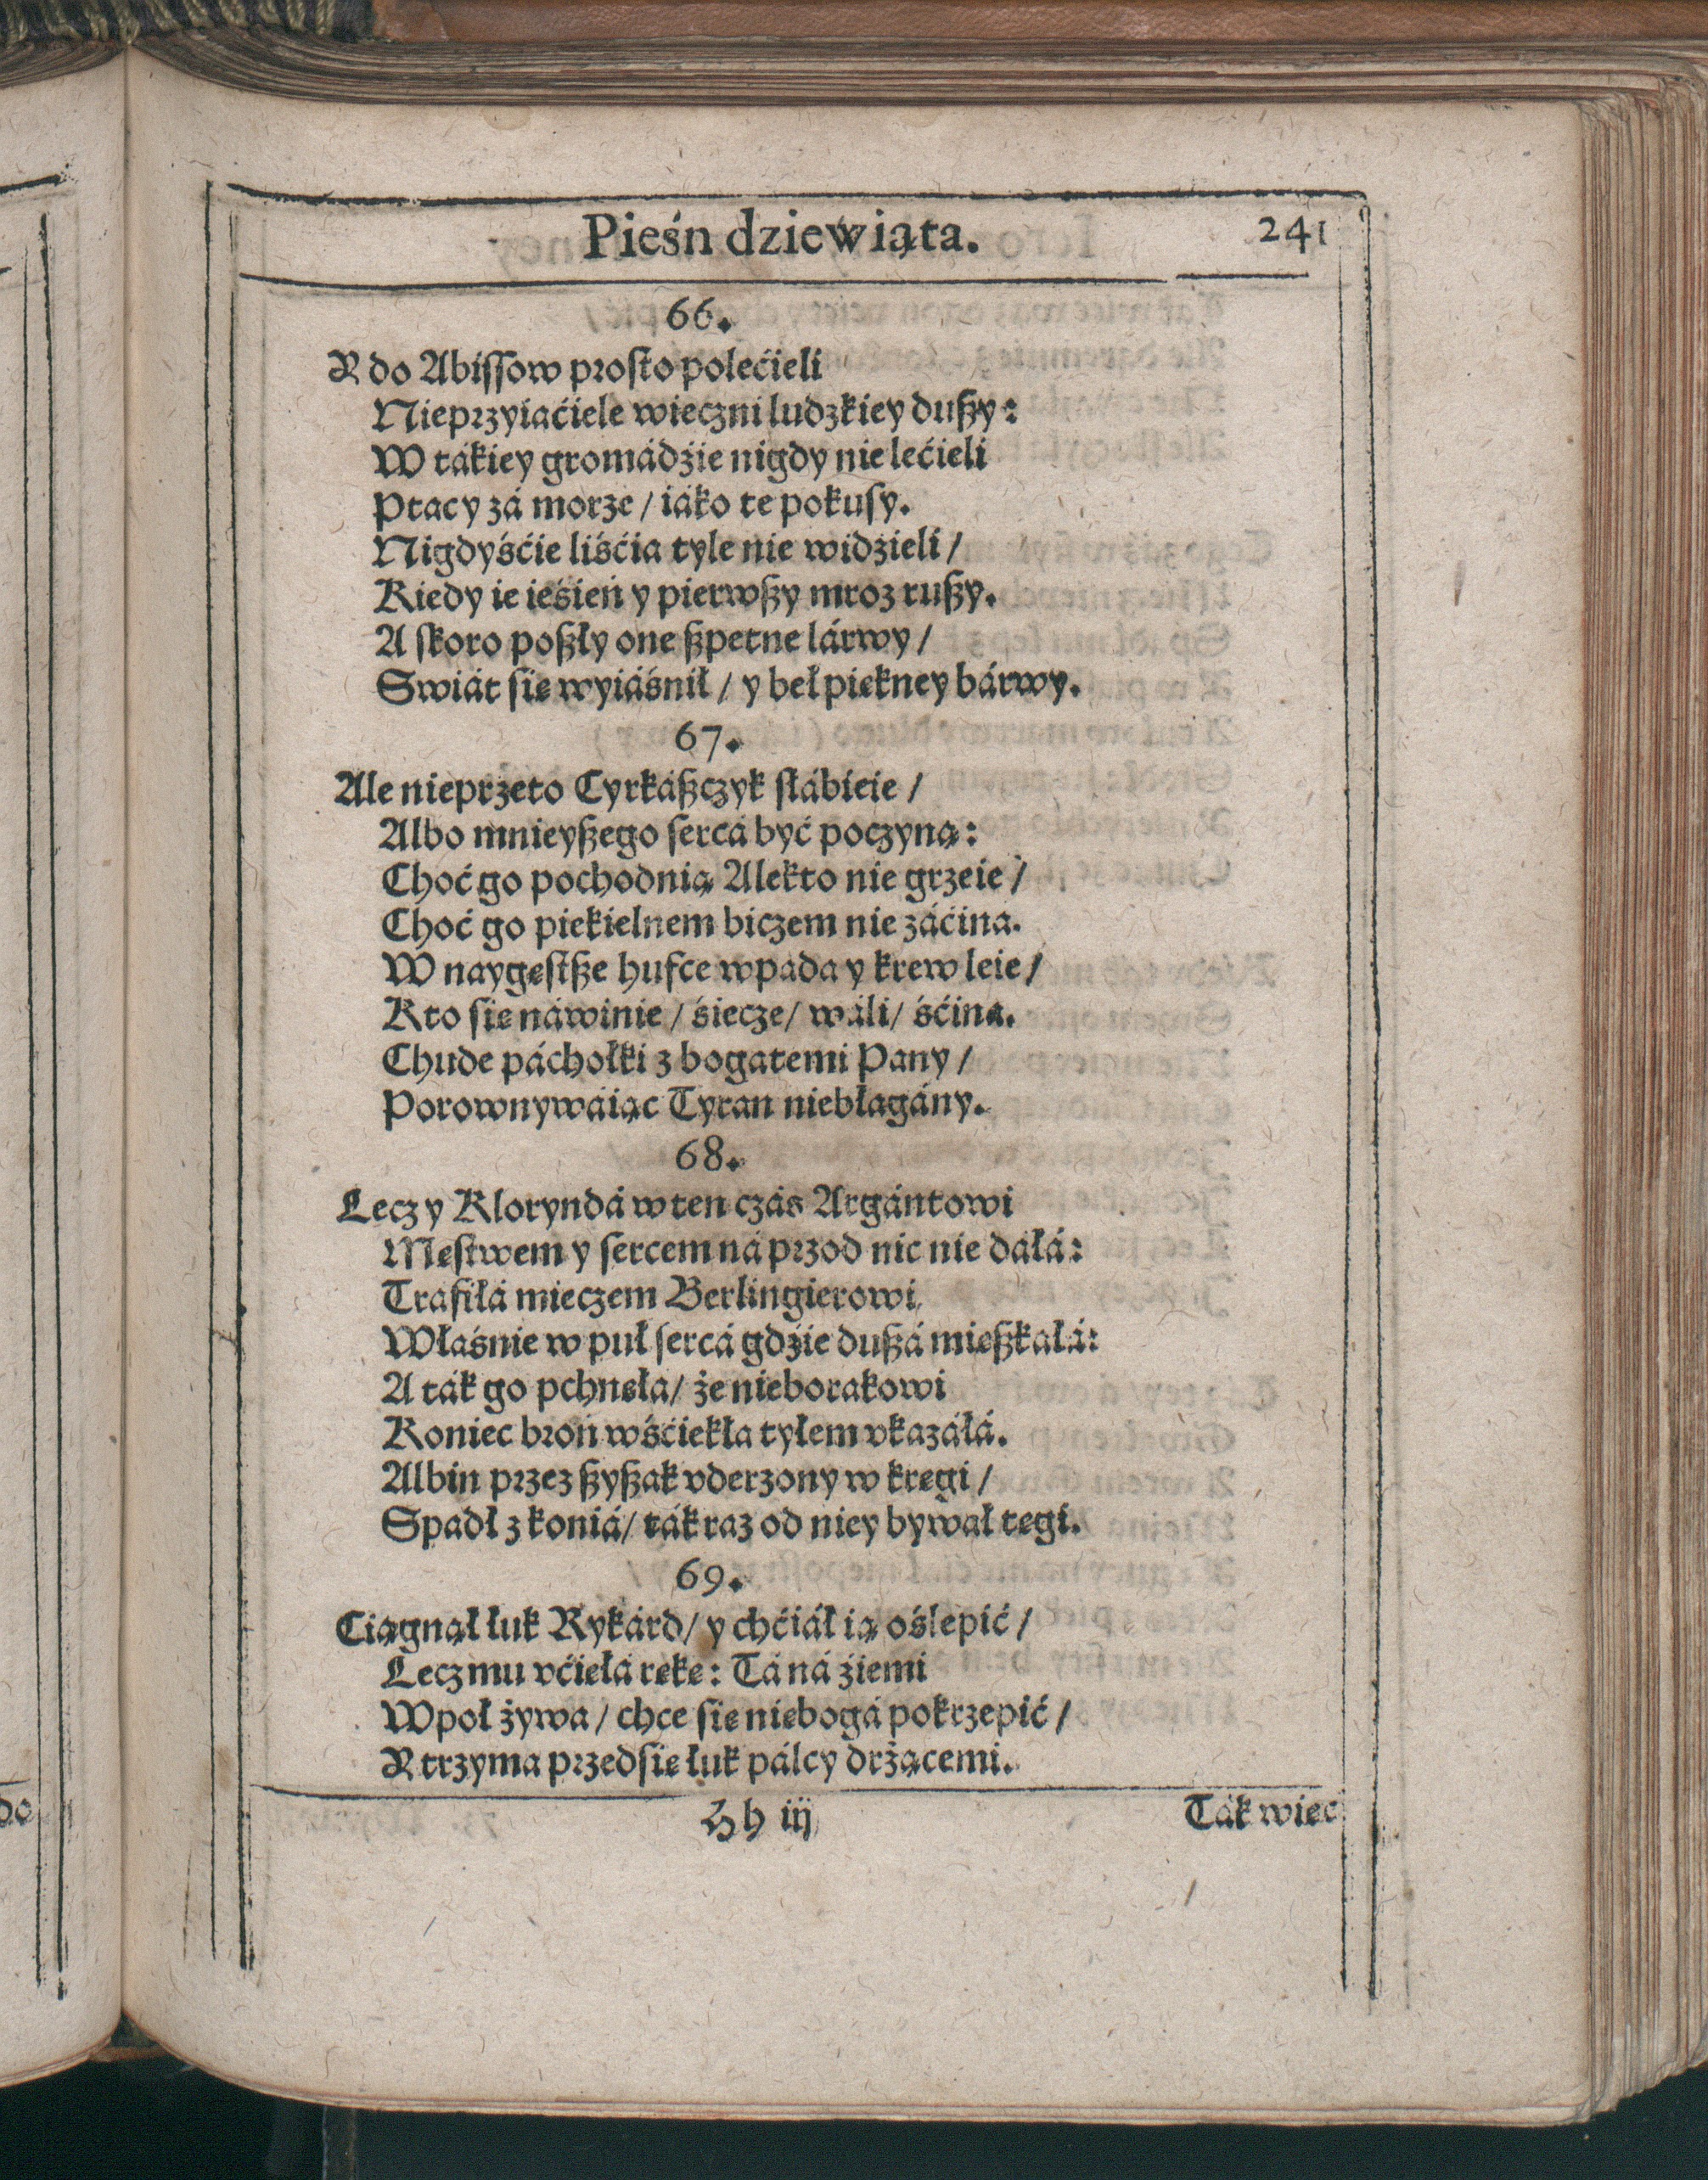 Pieśn dziewiąta. 241
66.
Y do Abissow prosto polećieli
Nieprzyiaćiele wieczni ludzkiey duszy:
W tákiey gromádźie nigdy nie lećieli
Ptacy zá morze / iáko te pokusy.
Nigdyśćie liśćia tyle nie widźieli /
Kiedy ie ieśień y pierwszy mroz ruszy.
A skoro poszły one szpetne lárwy /
Swiát się wyiáśnił / y beł piękney bárwy.
67.
Ale nieprzeto Cyrkászczyk słábieie /
Albo mnieyszego sercá być poczyna:
Choć go pochodnią Alekto nie grzeie /
Choć go piekielnem biczem nie záćina.
W naygęstsze hufce wpada y krew leie /
Kto się náwinie / śiecze / wáli / śćina.
Chude páchołki z bogatemi Pany /
Porownywáiąc Tyran niebłagány.
68.
Lecz y Kloryndá w ten czás Argántowi
Męstwem y sercem ná przod nic nie dáłá:
Trafiłá mieczem Berlingierowi
Właśnie w puł sercá gdźie duszá mieszkałá:
A ták go pchnęła / że nieborakowi
Koniec broń wśćiekła tyłem vkazáłá.
Albin przez szyszak vderzony w kręgi /
Spadł z koniá / ták raz od niey bywał tęgi.
69.
Ciągnął łuk Rykárd / y chćiáł ią oślepić /
Lecz mu vćięłá rękę: Tá ná źiemi
Wpoł żywa / chce się niebogá pokrzepić /
Y trzyma przedsię łuk pálcy drżącemi.
Hh iij Ták więc
do